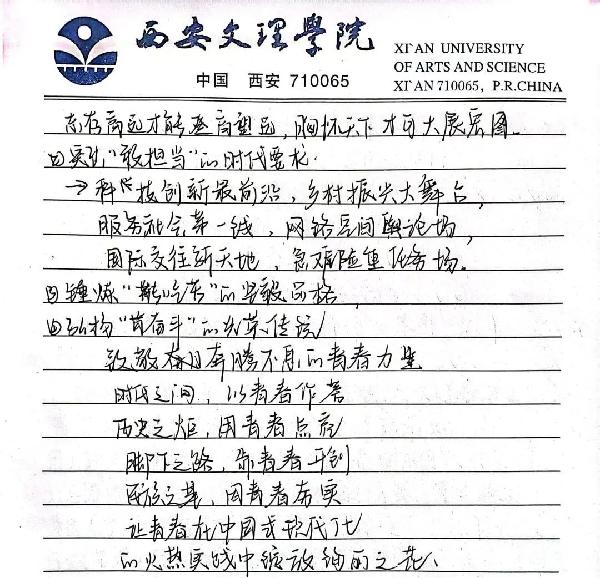 西安文理學院
中国 西安 710065
XI'AN UNIVERSITY
OF ARTS AND SCIENCE
XI'AN 710065, P.R.CHINA
志存高远才能登高望远，胸怀天下才可大展宏图。
实现“敢担当”的时代要求.
→科学技创新最前沿，乡村振兴大舞台，
服务社会第一线，网络空间舆论场，
国际交往新天地，急难险重任务场。
锤炼“能吃苦”的坚毅品格，
弘扬“肯奋斗”的光荣传统
致敬 奔腾不息的青春力量
时代之问，以青春作答
历史之炬，用青春点亮
脚下之路，靠青春开创
民族之基，用青春夯实
让青春在中国式现代化
的火热实践中绽放绚丽之花、